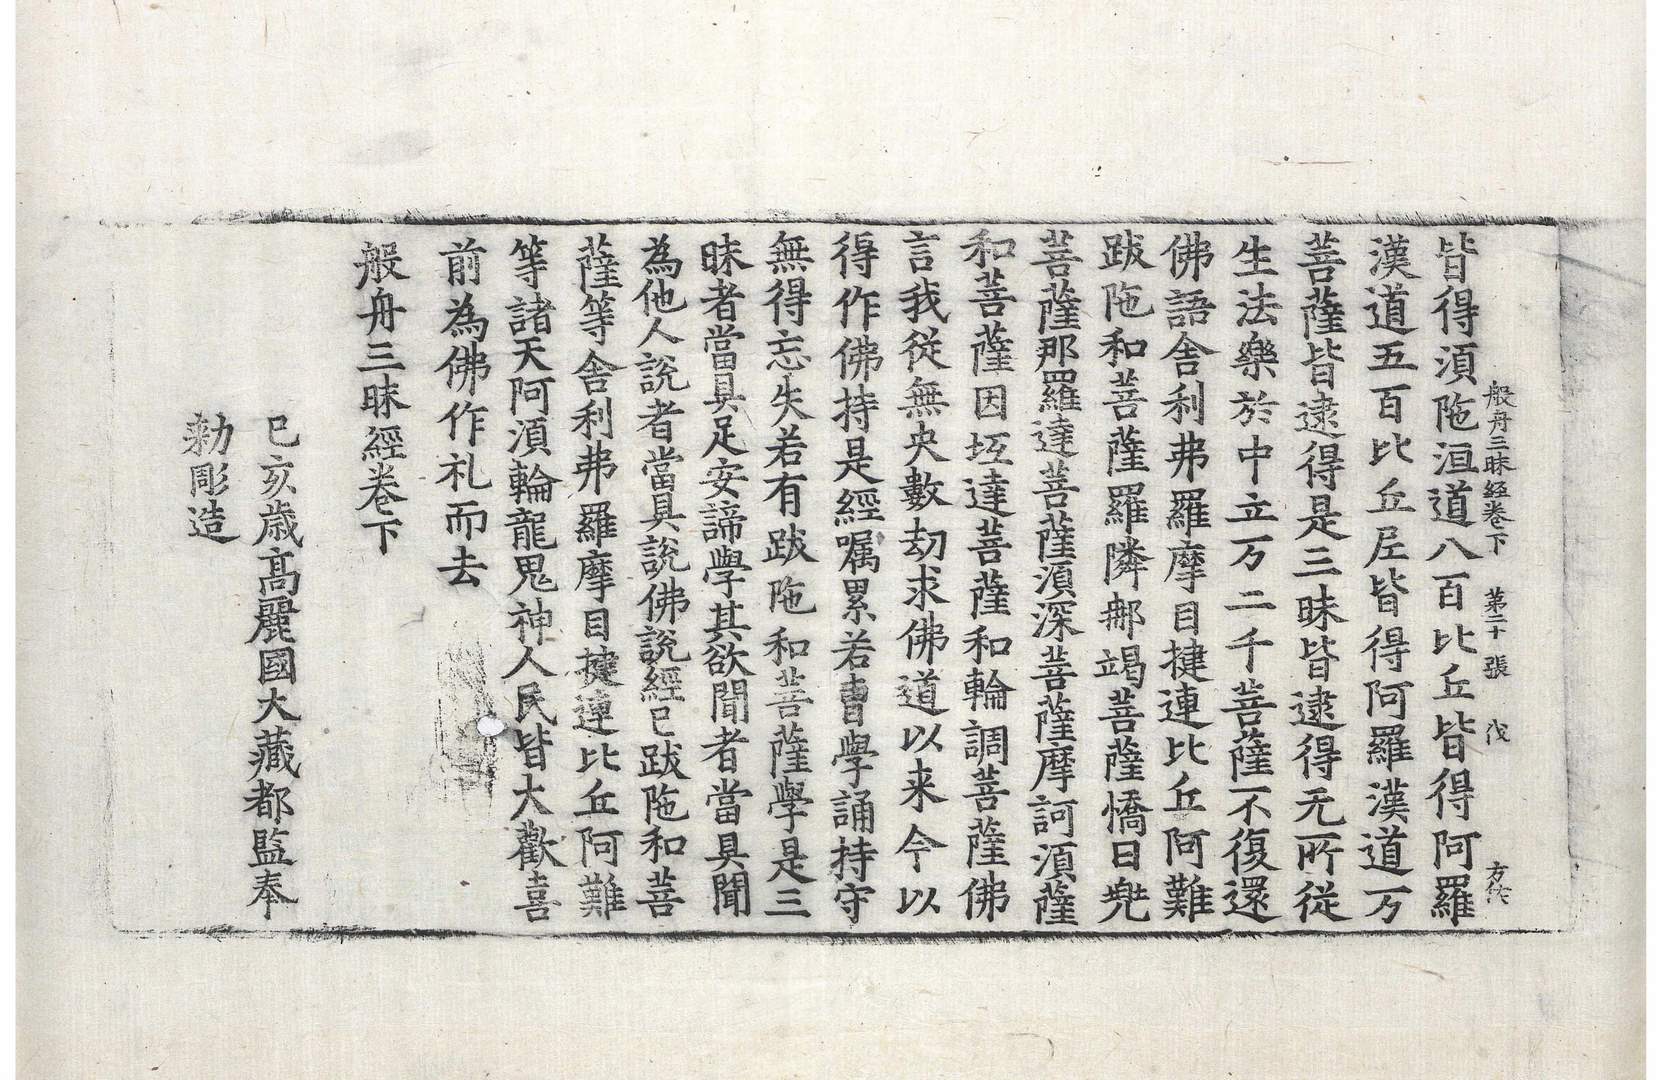 般舟三昧経卷下 第二十張 伐
皆得須陁洹道八百比丘皆得阿羅
漢道五百比丘尼皆得阿羅漢道万
菩薩皆逮得是三昧皆逮得无所從
生法樂於中立万二千菩薩不復還
佛語舍利弗羅摩目揵連比丘阿難
跋陁和菩薩羅隣那竭菩薩憍曰兜
菩薩那羅達菩薩湏深菩薩摩訶湏薩
和菩薩因坻達菩薩和輪調菩薩佛
言我從無央數劫求佛道以来今以
得作佛持是經嘱累若曹學誦持守
無得忘失若有跋陁和菩薩學是三
昧者當具足安諦學其欲聞者當具聞
為他人說者當具說佛說經已跋陁和菩
薩等舍利弗羅摩目揵連比丘阿難
等諸天阿湏輪龍鬼神人民皆大歡喜
前為佛作礼而去
般舟三昧經卷下
己亥歳高麗國大藏都監奉
勑彫造